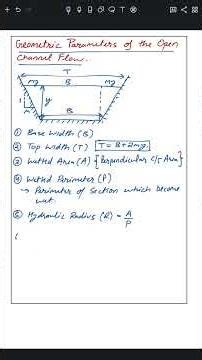 Geometric Parameters of the Open
Channel Flow.
T
my B my
1 y
m B
① Base Width (B)
② Top Width (T) T = B + 2my.
③ Wetted Area (A) {Perpendicular C/S Area}
④ Wetted Perimeter (P)
→ Perimeter of Section which become
wet.
⑤ Hydraulic Radius (R) = A
P